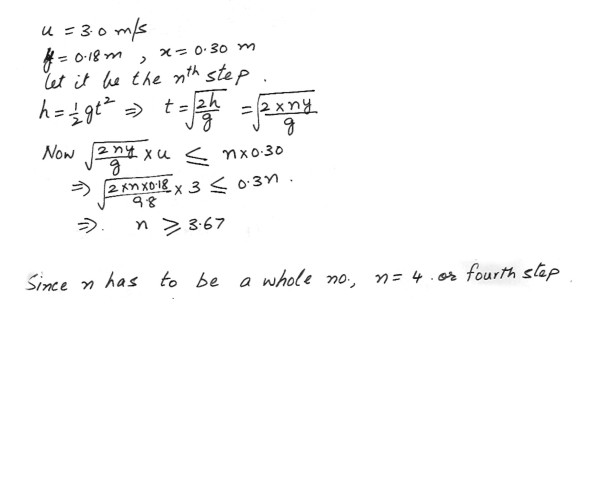 u = 3.0 m/s
y = 0.18 m , x = 0.30 m
Let it be the nth step .
h = ½ gt² ⇒ t = √(2h/g) = √(2 x ny/g)
Now √(2ny/g) x u ≤ n x 0.30
⇒ √(2 x n x 0.18/9.8) x 3 ≤ 0.3n .
⇒. n ≥ 3.67
Since n has to be a whole no., n = 4 . or fourth step .